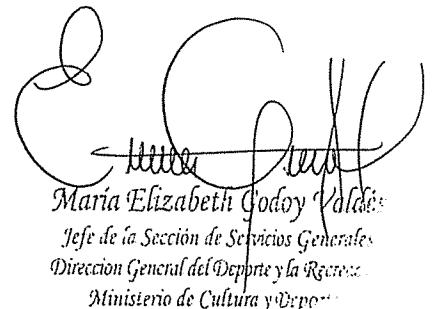 María Elizabeth Godoy Valdés
Jefe de la Sección de Servicios Generales
Dirección General del Deporte y la Recrea
Ministerio de Cultura y Deporte